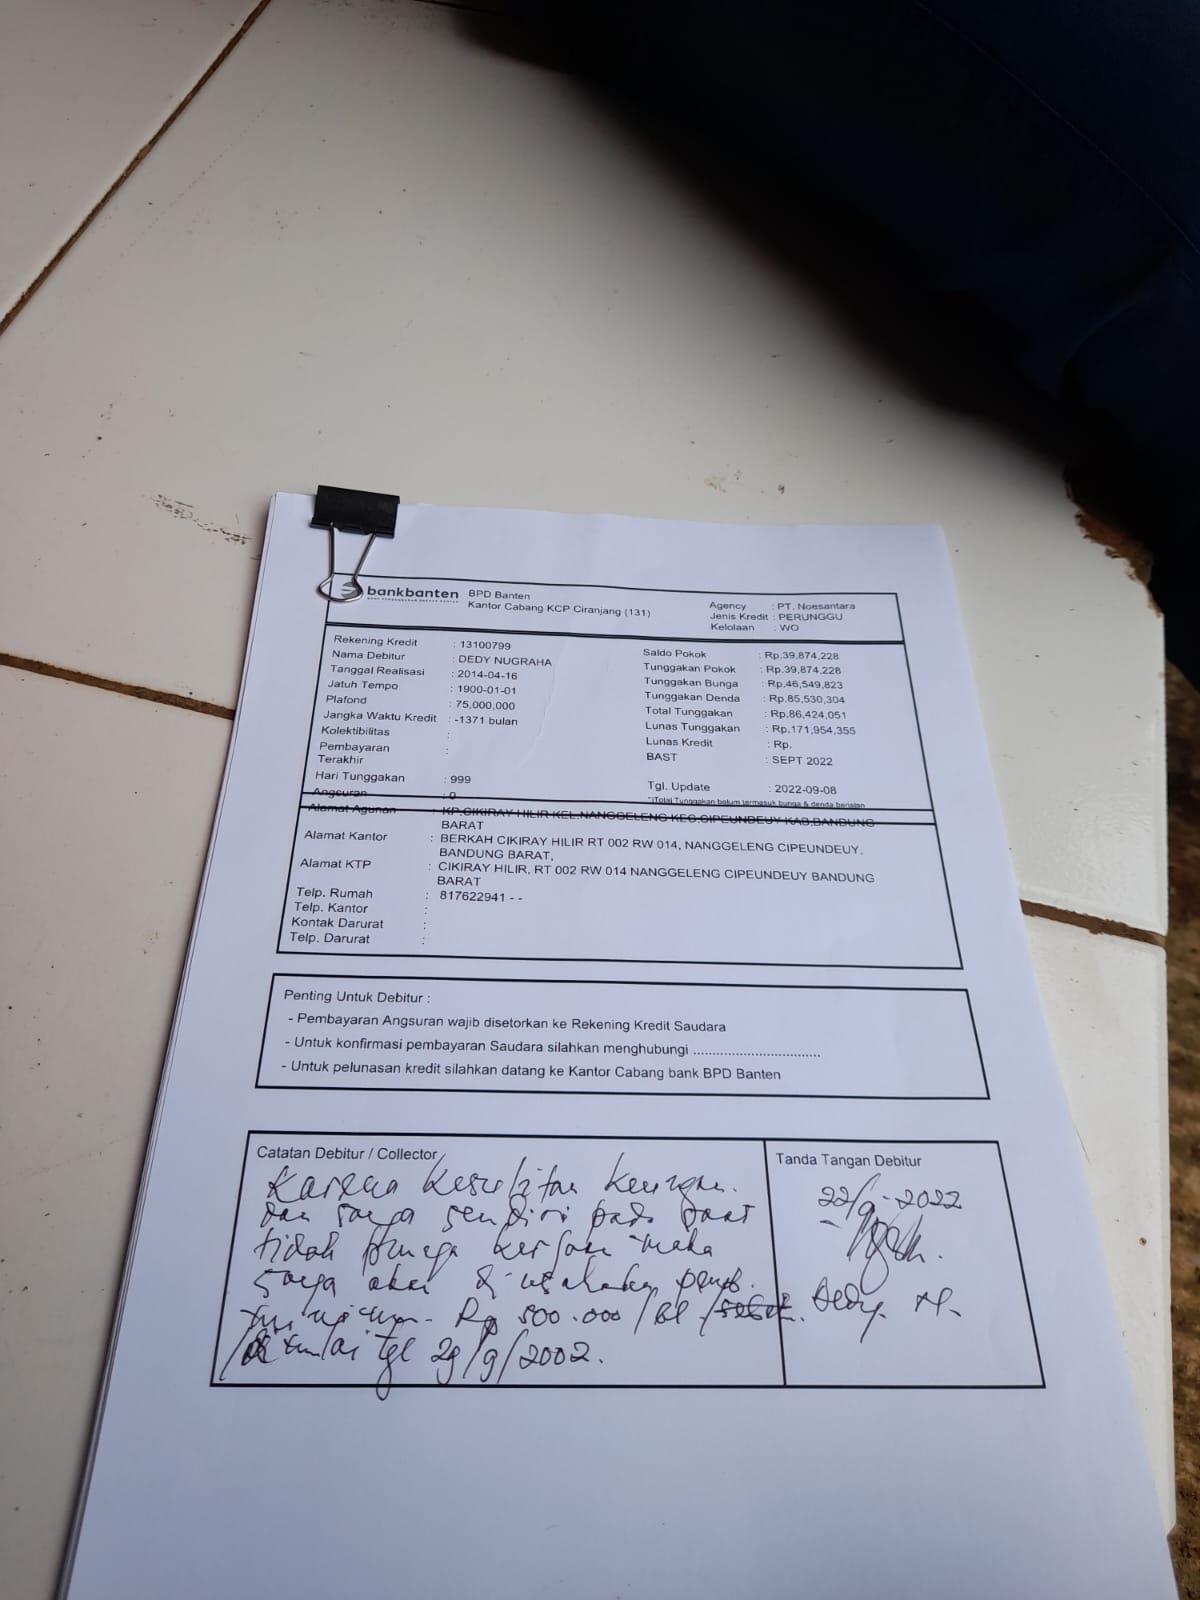 bankbanten
BPD Banten
Kantor Cabang KCP Ciranjang (131)
Agency : PT. Noesantara
Jenis Kredit : PERUNGGU
Kelolaan : WO
Rekening Kredit : 13100799
Nama Debitur : DEDY NUGRAHA
Tanggal Realisasi : 2014-04-16
Jatuh Tempo : 1900-01-01
Plafond : 75,000,000
Jangka Waktu Kredit : -1371 bulan
Kolektibilitas :
Pembayaran Terakhir :
Hari Tunggakan : 999
Angsuran : 0
Saldo Pokok : Rp.39,874,228
Tunggakan Pokok : Rp.39,874,228
Tunggakan Bunga : Rp.46,549,823
Tunggakan Denda : Rp.85,530,304
Total Tunggakan : Rp.86,424,051
Lunas Tunggakan : Rp.171,954,355
Lunas Kredit : Rp.
BAST : SEPT 2022
Tgl. Update : 2022-09-08
*)Total Tunggakan belum termasuk bunga & denda berjalan
Alamat Agunan : KP.CIKIRAY HILIR KEL.NANGGELENG KEC.CIPEUNDEUY KAB.BANDUNG
BARAT
Alamat Kantor : BERKAH CIKIRAY HILIR RT 002 RW 014, NANGGELENG CIPEUNDEUY,
BANDUNG BARAT,
Alamat KTP : CIKIRAY HILIR, RT 002 RW 014 NANGGELENG CIPEUNDEUY BANDUNG
BARAT
Telp. Rumah : 817622941 - -
Telp. Kantor :
Kontak Darurat :
Telp. Darurat :
Penting Untuk Debitur :
- Pembayaran Angsuran wajib disetorkan ke Rekening Kredit Saudara
- Untuk konfirmasi pembayaran Saudara silahkan menghubungi ................................
- Untuk pelunasan kredit silahkan datang ke Kantor Cabang bank BPD Banten
Catatan Debitur / Collector
Karena kesulitan
dan saya sendiri pada saat
tidak punya maka
saya akan di usahakan
Rp 500.000 / Bl
tgl 29/9/2002.
Tanda Tangan Debitur
22/9-2022
Dedy N.